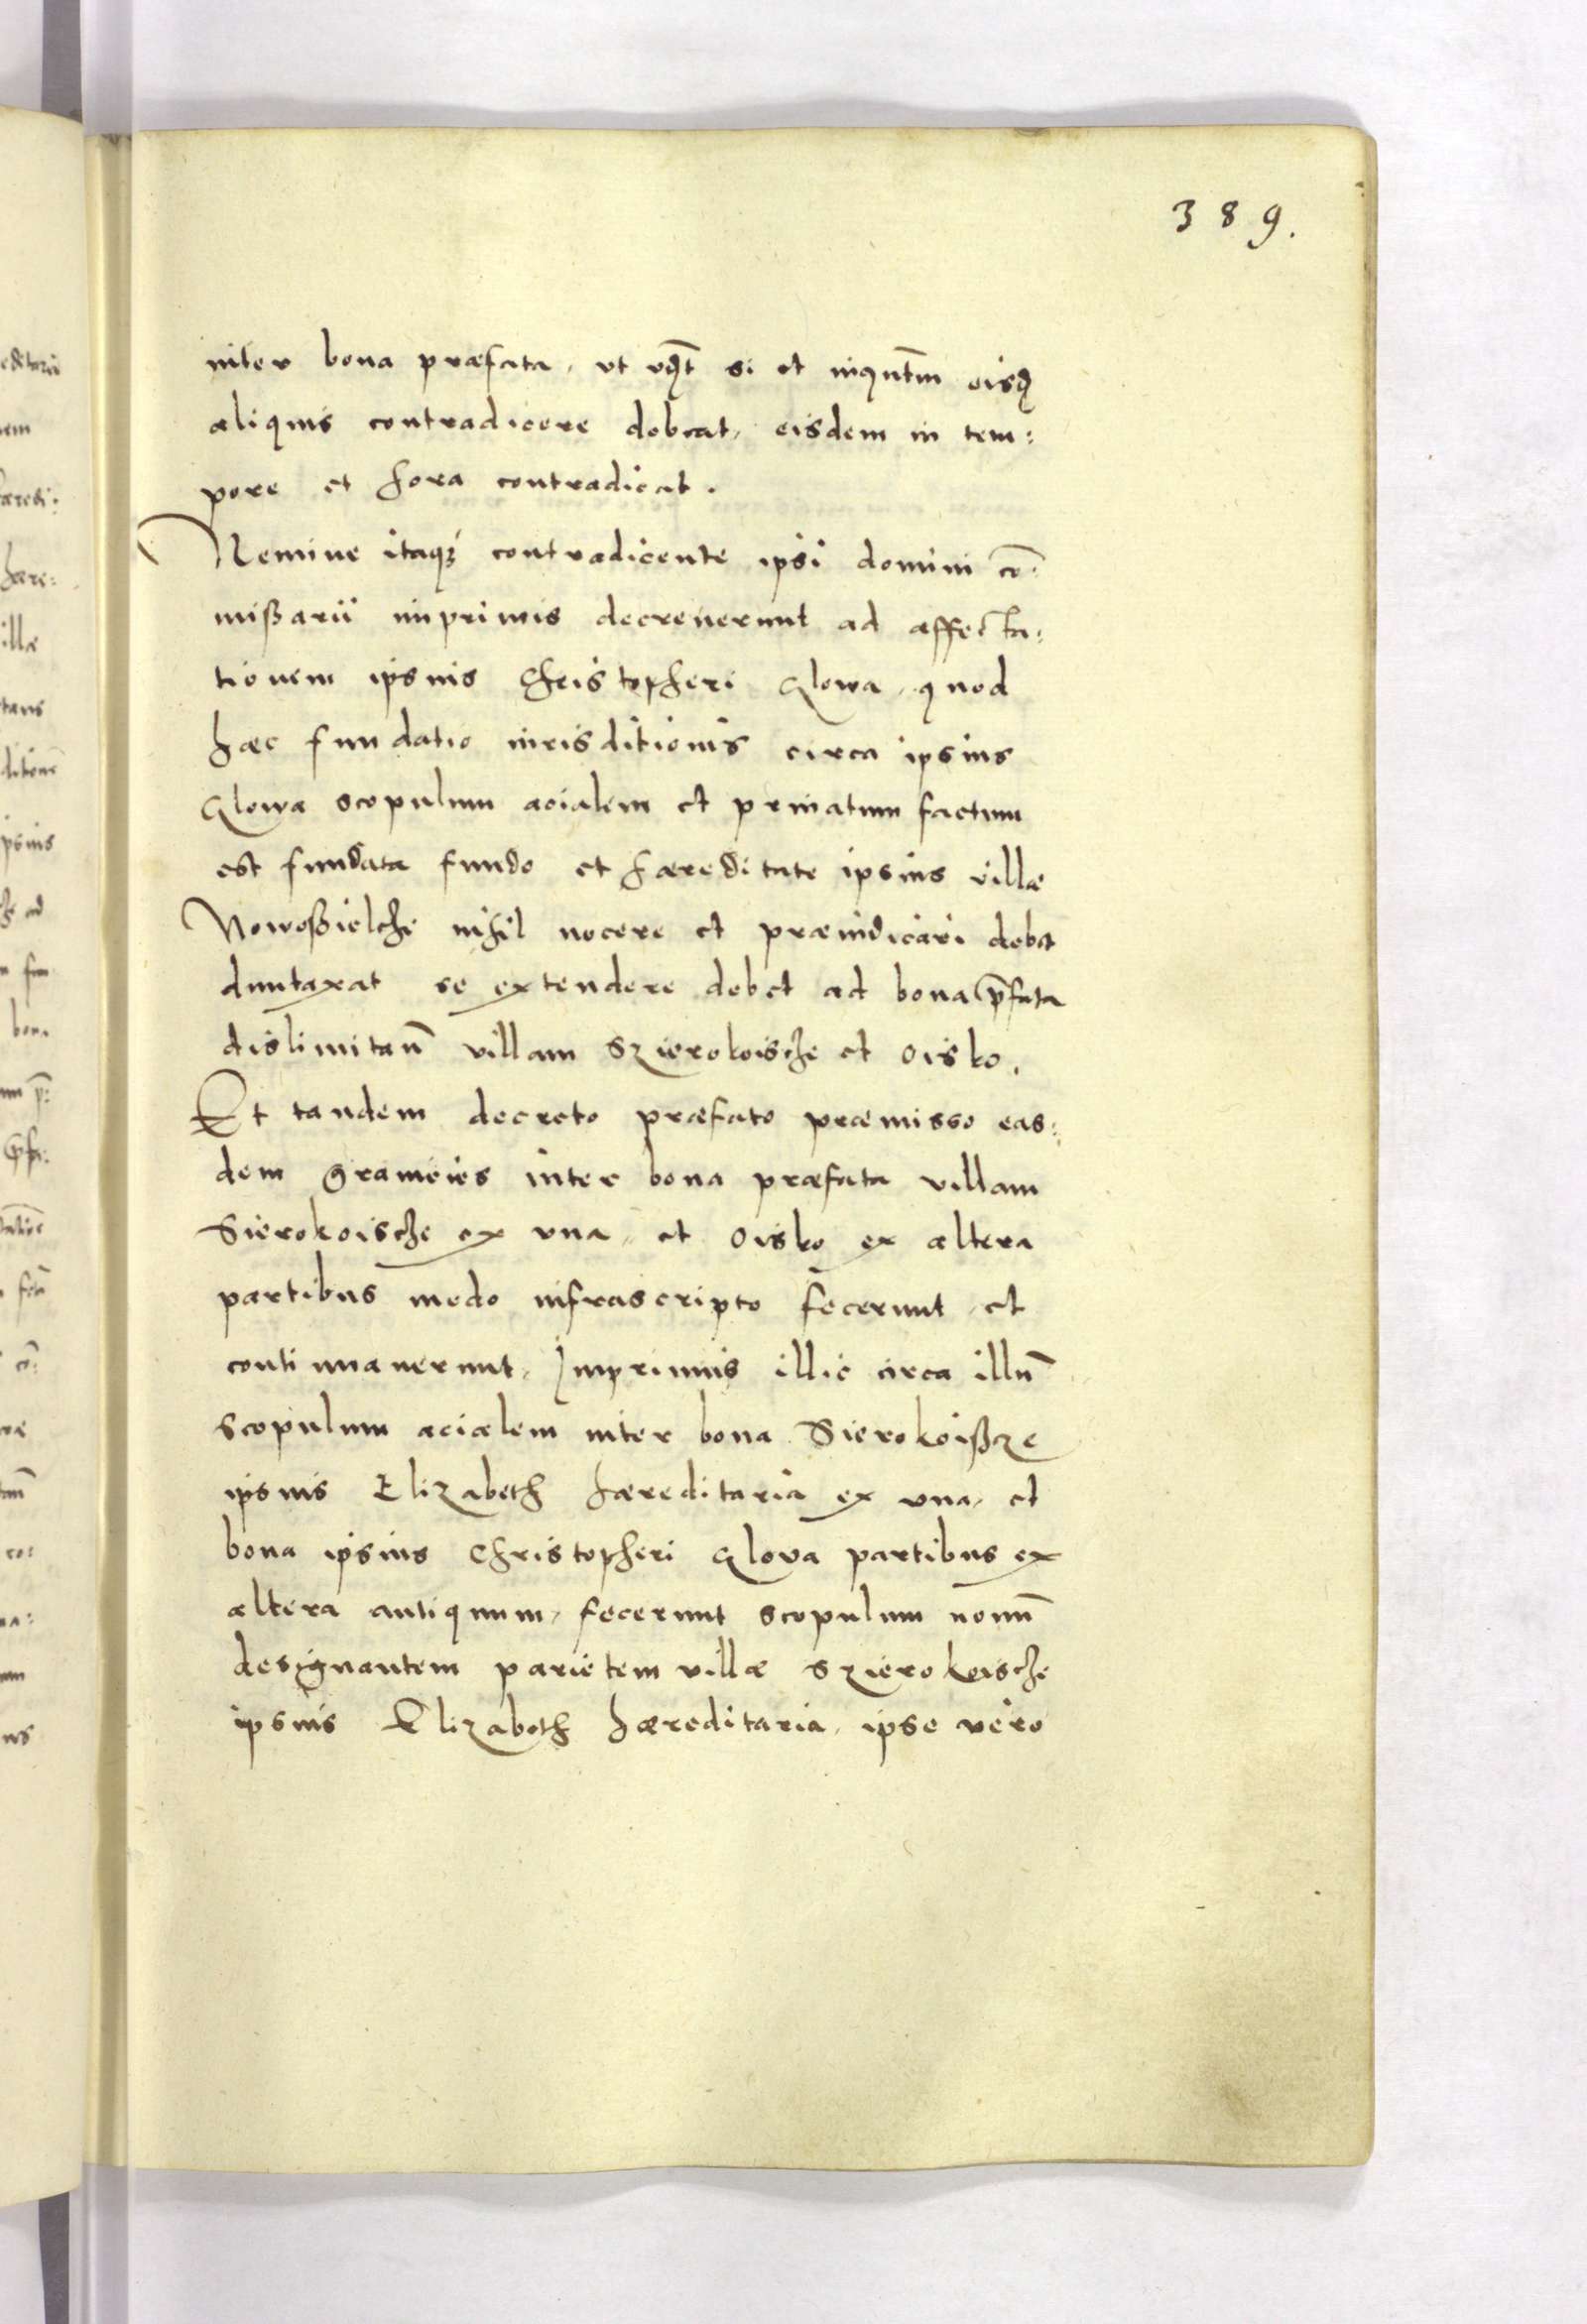 389.
inter bona præfata, ut si et inquantum eisdem
aliquis contradicere debeat, eisdem in tem:
pore et hora contradicat.
Nemine itaque contradicente ipsi domini co:
mißarii inprimis decreuerunt ad affecta:
tionem ipsius Christopheri Glowa, quod
hæc fundatio iurisditionis circa ipsius
Glowa scopulum acialem et priuatum factum
est fundata fundo et hæreditate ipsius villæ
Nowoßielche nihil nocere et præiudicari debet
duntaxat se extendere debet ad bona p̄fata
dislimitan̄ villam Szierokoische et Oisko.
Et tandem decreto præfato præmisso eas:
dem gramcies inter bona præfata villam
Sierokoische ex vna, et Oisko ex altera
partibus modo infrascripto fecerunt et
continuauerunt, Imprimis illic circa illū
scopulum acialem inter bona Sierokoißze
ipsius Elizabeth hæreditaria ex vna, et
bona ipsius Christopheri Glova partibus ex
altera antiquum, fecerunt scopulum nouū
designantem parietem villæ Szierokoische
ipsius Elizabeth hæreditaria, ipse vero